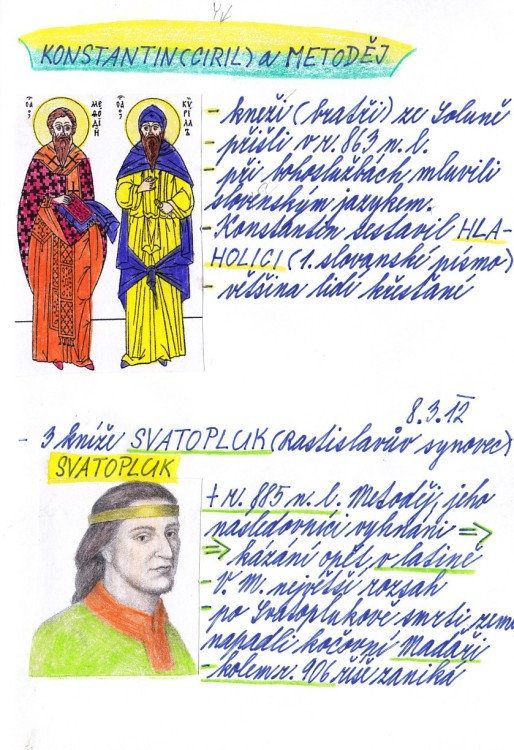 KONSTANTIN (CIRIL) a METODĚJ
МЕѲОДІЙ
КѴРІЛЛЪ
- kněží (bratři) ze Soluně
- přišli v r. 863 n. l.
- při bohoslužbách mluvili
slovanským jazykem.
- Konstantin sestavil HLA-
HOLICI (1. slovanské písmo)
- většina lidí křesťané
8. 3. 12
- 3 kníže SVATOPLUK (Rastislavův synovec)
SVATOPLUK
† r. 885 n. l. Metoděj, jeho
následovníci vyhnáni ⇒
⇒ kázání opět v latině
- V. M. největší rozsah
- po Svatoplukově smrti země
napadli kočovní Maďaři
- kolem r. 906 říše zaniká